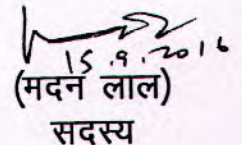 15.9.2016
(मदन लाल)
सदस्य